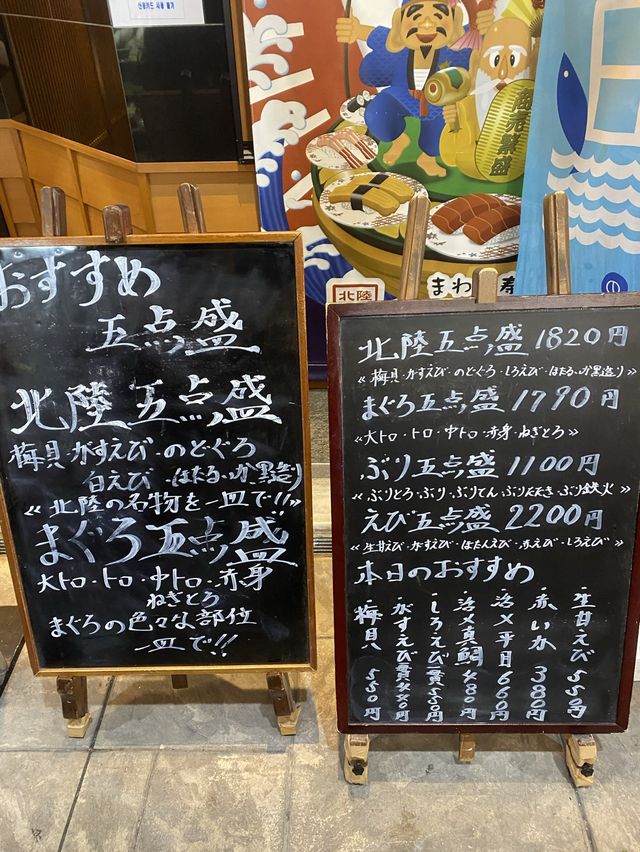 신용카드 사용 불가
おすすめ
五点盛
北陸五点盛
梅貝・がすえび・のどぐろ
白えび・ほたるいか黒造り
≪北陸の名物を一皿で!!≫
まぐろ五点盛
大トロ・トロ・中トロ・赤身
ねぎとろ
まぐろの色々な部位
一皿で!!
北陸
まわ
寿
日
の
北陸五点盛 1820円
≪梅貝・がすえび・のどぐろ・しろえび・ほたるいか黒造り≫
まぐろ五点盛 1790円
≪大トロ・トロ・中トロ・赤身・ねぎとろ≫
ぶり五点盛 1100円
≪ぶりとろ・ぶり・ぶりてん・ぶりたたき・ぶり鉄火≫
えび五点盛 2200円
≪生甘えび・がすえび・ぼたんえび・赤えび・しろえび≫
本日のおすすめ
・生甘えび 550円
・赤いか 380円
・活〆平目 660円
・活〆真鯛 480円
・しろえび 550円
・がすえび 440円
・梅貝 550円